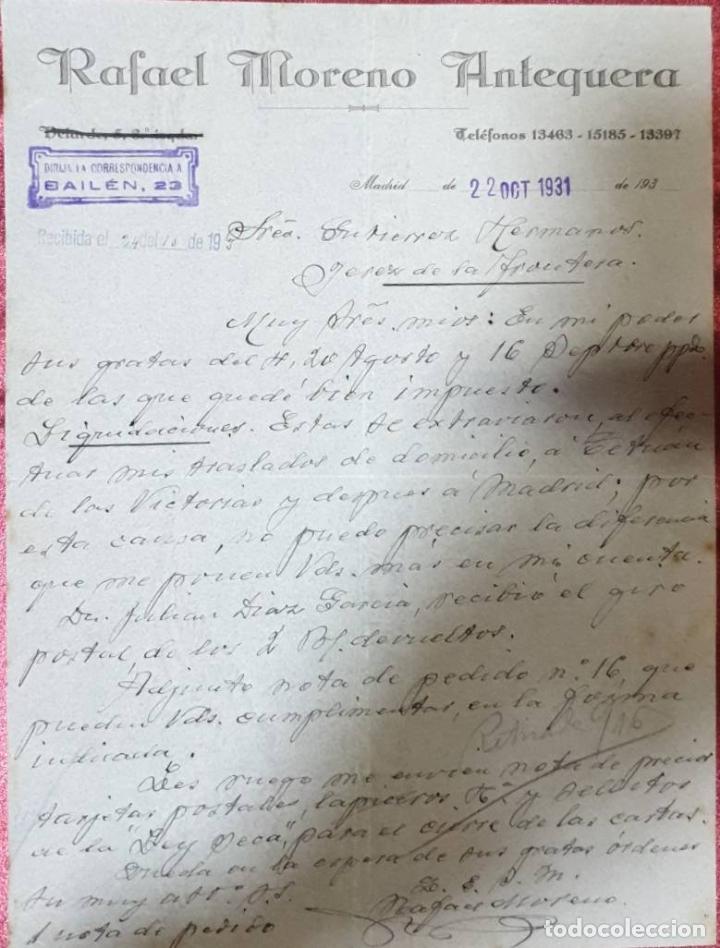 Rafael Moreno Antequera
Teléfonos 13463 - 15185 - 13397
DIRIJA LA CORRESPONDENCIA A
BAILÉN, 23
Madrid de 22 OCT 1931 de 193
Recibida el 24 del 10 de 193
Sres. Gutierrez Hermanos.
Jerez de la Frontera.
Muy Sres. mios: En mi poder
sus gratas del 4, 20 Agosto y 16 Septbre ppdo
de las que quedé bien impuesto.
Liquidaciones. Estas se extraviaron, al efec-
tuar mis traslados de domicilio, á Tetuán
de las Victorias y despues á Madrid; por
esta causa, no puedo precisar la diferencia
que me ponen Vds. mas en mi cuenta.
Dn. Julian Diaz Garcia, recibió el giro
postal, de los 2 Bl. devueltos.
Adjunto nota de pedido nº 16, que
pueden Vds. cumplimentar, en la forma
indicada.
Les ruego me envien nota de precios
tarjetas postales, lapiceros, &ª y selectos
de la "Ley Seca", para el cierre de las cartas.
Queda en la espera de sus gratas órdenes
su muy att.º s.s.
q. e. s. m.
Rafael Moreno
1 nota de pedido
todocoleccion